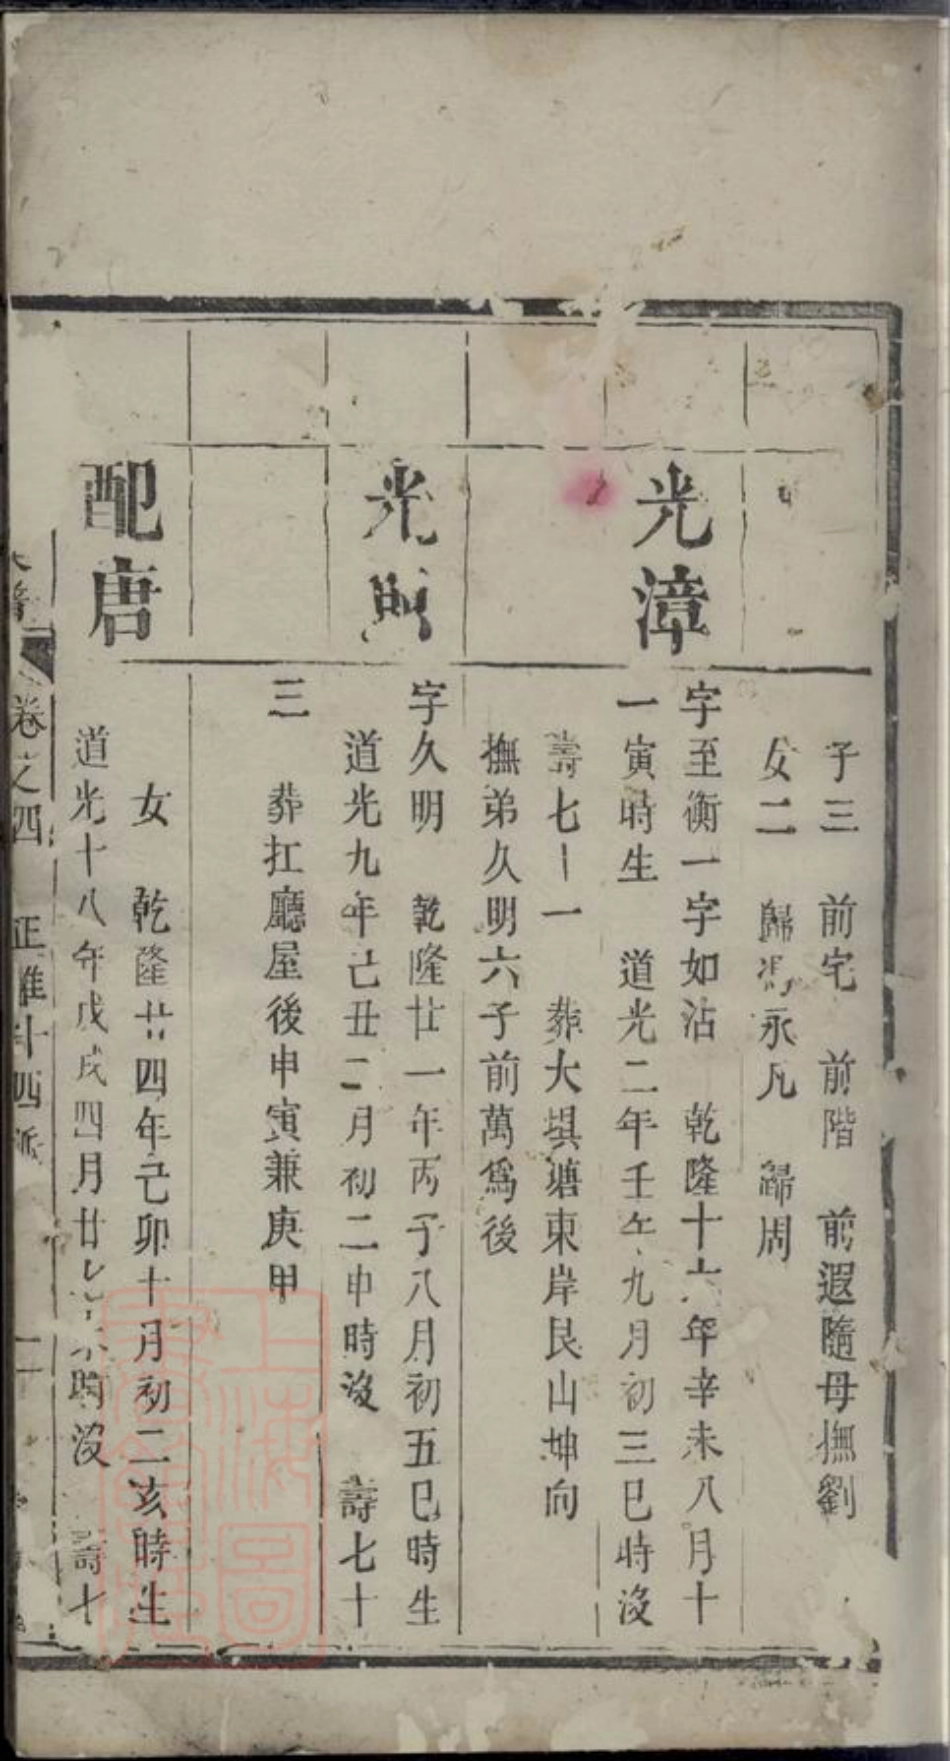 子三 前宅 前階 前遐隨母撫劉
女二 歸馮永凡 歸周
光漳
字至衡一字如沾 乾隆十六年辛未八月十
一寅時生 道光二年壬午九月初三巳時沒
壽七十一 葬大塘東岸艮山坤向
撫弟久明六子前萬為後
光則
字久明 乾隆廿一年丙子八月初五巳時生
道光九年己丑二月初二申時沒 壽七十
三 葬扛廳屋後申寅兼庚甲
配唐
女 乾隆廿四年己卯十月初二亥時生
道光十八年戊戌四月廿時沒 壽七
卷之四 正雕十四派 二
上海圖書館藏